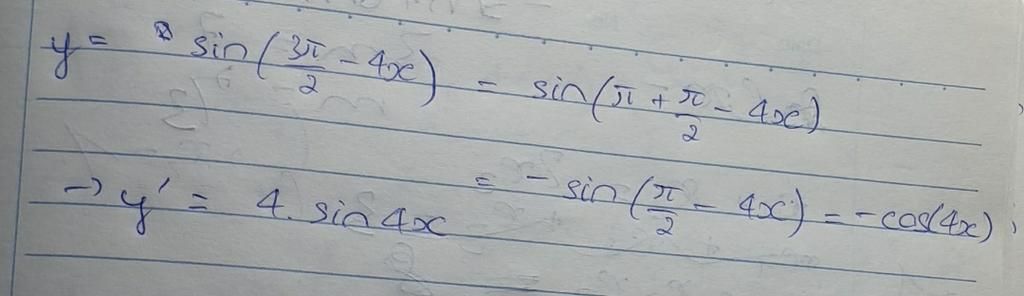 y = sin(3π/2 - 4x) = sin(π + π/2 - 4x)
= - sin(π/2 - 4x) = -cos(4x)
→ y' = 4.sin4x